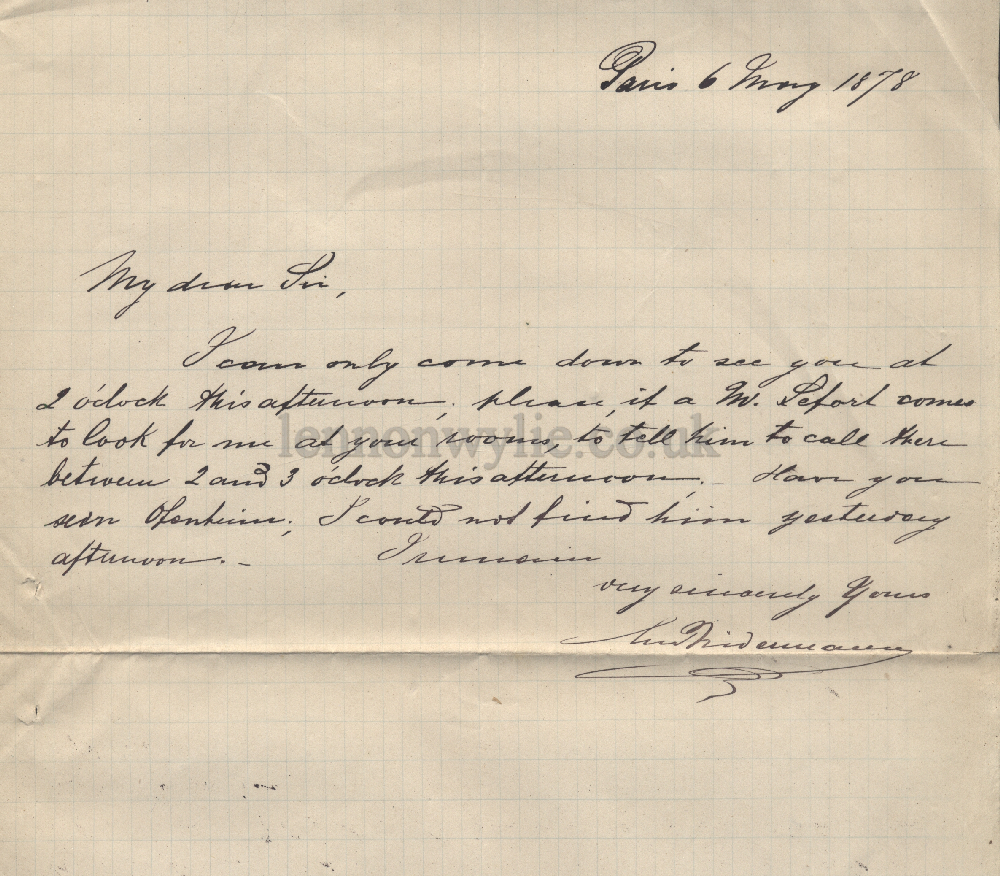 Paris 6 May 1878
My dear Sir,
I can only come down to see you at
2 o'clock this afternoon; please, if a M. Lefort comes
to look for me at your rooms, to tell him to call there
between 2 and 3 o'clock this afternoon. Have you
seen Ofenheim; I could not find him yesterday
afternoon. - I remain
very sincerely Yours
lennonwylie.co.uk